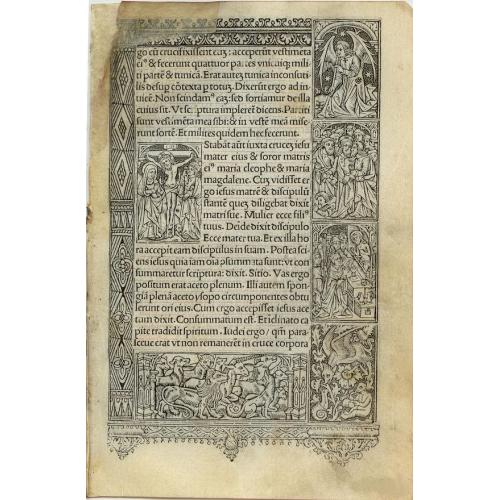 go cū crucifixissent eaȝ: acceperūt vestimēta
ei⁹ & fecerunt quattuor partes vnicuiqȝ mili
ti partē & tunicā. Erat auteȝ tunica inconsuti
lis desup cōtexta p totuȝ. Dixerūt ergo ad in
uicē. Non scindam⁹ eaȝ: sed sortiamur de illa
cuius sit. Vt scriptura impleret dicens. Partiti
sunt vestimēta mea sibi: & in vestē meā mise
runt sortē. Et milites quidem hec fecerunt.
Stabāt aūt iuxta cruceȝ iesu
mater eius & soror matris
ei⁹ maria cleophe & maria
magdalene. Cuȝ vidisset er
go iesus matrē & discipulū
stantē queȝ diligebat dixit
matri sue. Mulier ecce fili⁹
tuus. Deīde dixit discipulo
Ecce mater tua. Et ex illa ho
ra accepit eam discipulus in suam. Postea sci
ens iesus quia iam oīa psūmata sunt: vt con
summaretur scriptura: dixit. Sitio. Vas ergo
positum erat aceto plenum. Illi autem spon
giā plenā aceto ysopo circumponentes obtu
lerunt ori eius. Cum ergo accepisset iesus ace
tam dixit. Consummatum est. Et īclinato ca
pite tradidit spiritum. Iudei ergo/ qm̄ para
sceue erat vt non remanerēt in cruce corpora